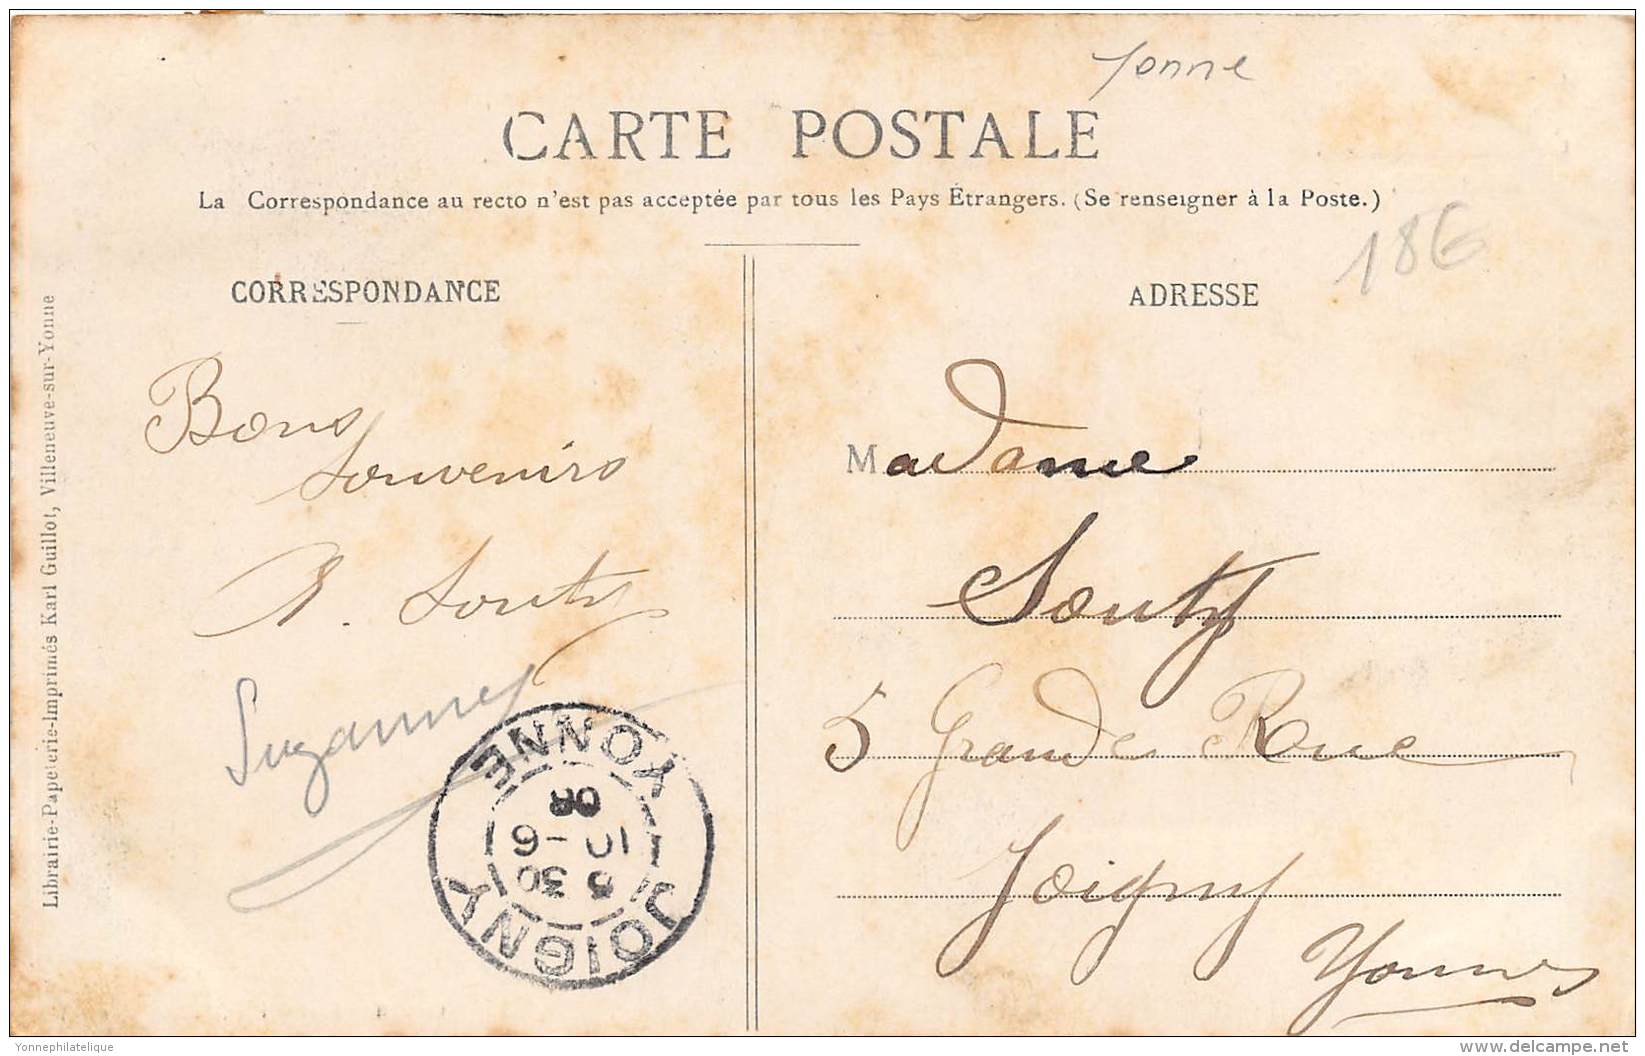 Yonne
CARTE POSTALE
La Correspondance au recto n'est pas acceptée par tous les Pays Étrangers. (Se renseigner à la Poste.)
18€
CORRESPONDANCE
Bons
Souvenirs
Souty
Suzanne
ADRESSE
Madame
Souty
5 Grande Rue
Joigny
Yonne
JOIGNY YONNE
30
10-6
08
Librairie-Papeterie-Imprimés Karl Guillot, Villeneuve-sur-Yonne
Yonnephilatelique
delcampe.net